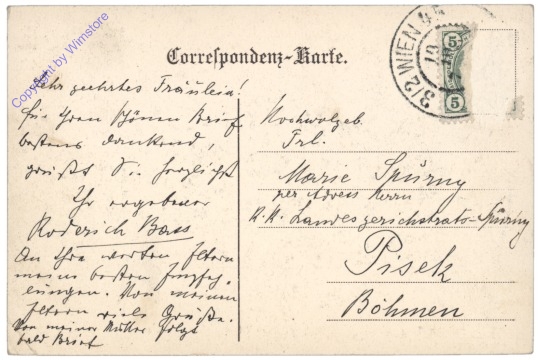 Copyright by Wimstore
Correspondenz-Karte.
3/2 WIEN 45
5
5
Sehr geehrtes Fräulein!
für Ihren schönen Brief
bestens dankend,
grüsst Sie herzlichst
Ihr ergebener
Roderich Bass
An Ihre werten Eltern
meine besten Empfeh-
lungen. Von meinen
Eltern viele Grüsse.
Von meiner Mutter folgt
bald Brief
Hochwolgeb.
Frl.
Marie Spürny
per Adress Herrn
K.K. Landesgerichtsrats-Spürny
Pisek
Böhmen